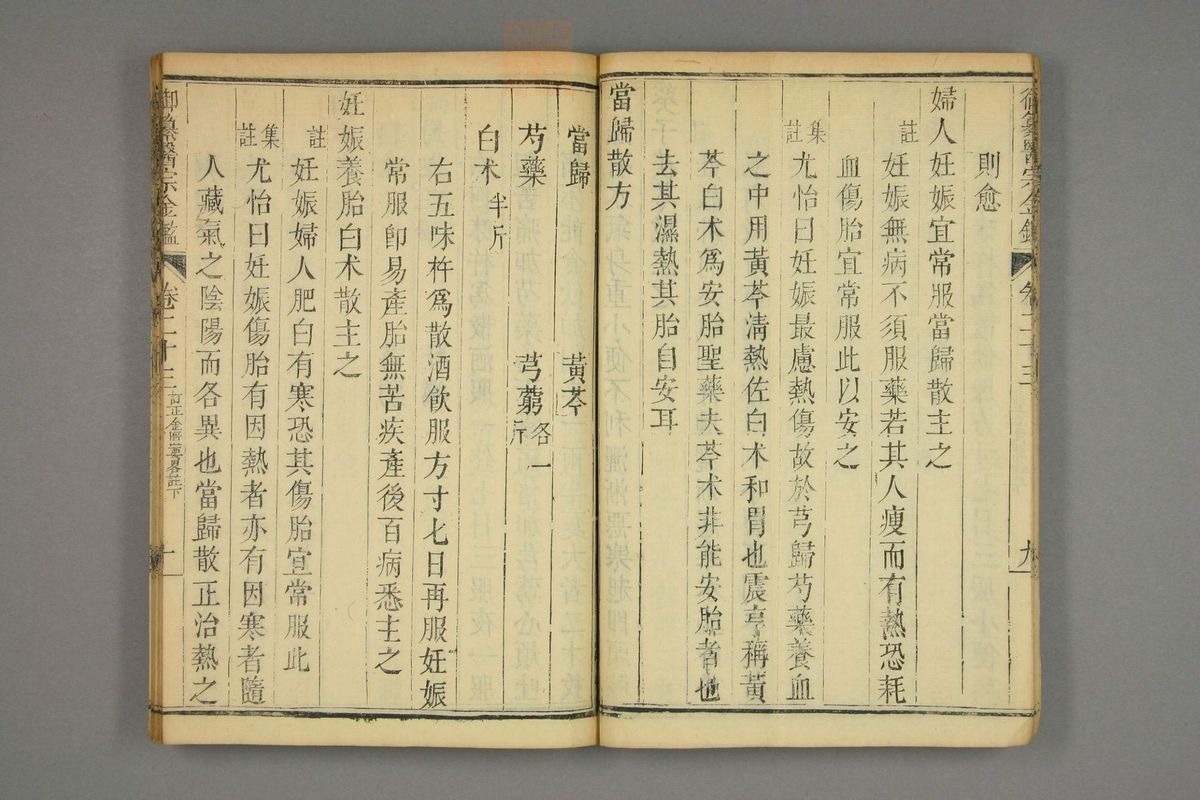 御纂醫宗金鑑 卷二十三 九
則愈
婦人妊娠宜常服當歸散主之
註 妊娠無病不須服藥若其人瘦而有熱恐耗
血傷胎宜常服此以安之
集註 尤怡曰妊娠最慮熱傷故於芎歸芍藥養血
之中用黃芩淸熱佐白术和胃也震亨稱黃
芩白术爲安胎聖藥夫芩术非能安胎者也
去其濕熱其胎自安耳
當歸散方
當歸 黃芩
芍藥 芎藭各一斤
白术半斤
右五味杵爲散酒飮服方寸匕日再服妊娠
常服卽易產胎無苦疾產後百病悉主之
妊娠養胎白术散主之
註 妊娠婦人肥白有寒恐其傷胎宜常服此
集註 尤怡曰妊娠傷胎有因熱者亦有因寒者隨
人藏氣之陰陽而各異也當歸散正治熱之
御纂醫宗金鑑 卷二十三 訂正金匱要畧註下 十